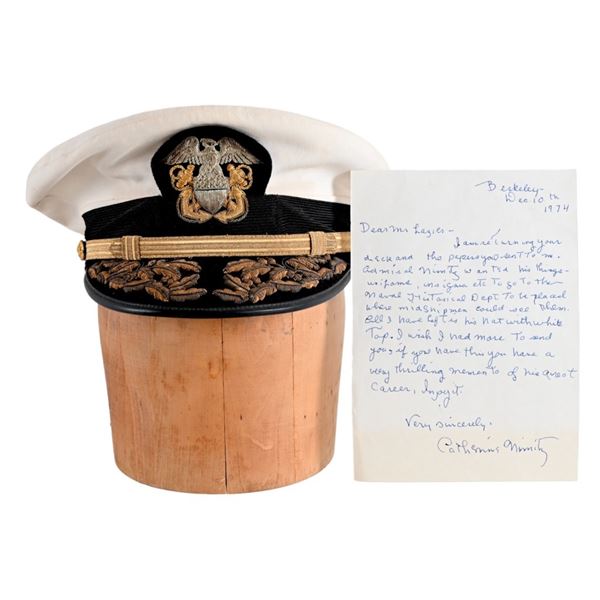 Berkeley -
Dec. 10 th
1974
Dear Mr Lazier -
I am returning your
check and the papers you sent to me.
Admiral Nimitz wanted his things -
uniforms, insignia etc to go to the
Naval Historical Dept. To be placed
where midshipmen could see them.
All I have left is his hat with white
Top. I wish I had more to send
you, if you have this you have a
very thrilling memento of his great
career, Enjoy it.
Very sincerely.
Catherine Nimitz